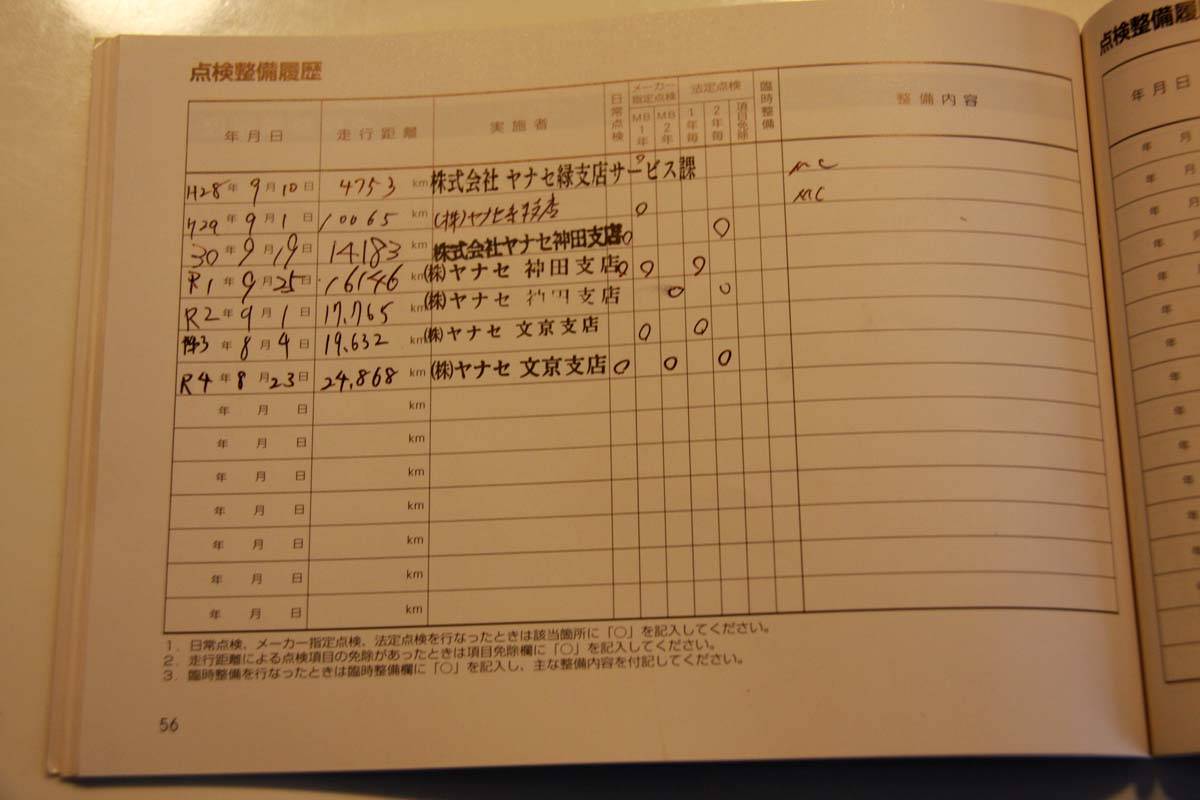 点検整備履歴
年月日 走行距離 実施者 日常点検 メーカー指定点検 MB1年 MB2年 法定点検 1年毎 2年毎 項目免除 臨時整備 整備内容
H28年 9月10日 4753 km 株式会社 ヤナセ緑支店サービス課 ○ MC
H29年 9月1日 10065 km (株)ヤナセ 支店 ○ MC
30年 9月19日 14183 km 株式会社ヤナセ神田支店 ○ ○
R1年 9月25日 16146 km (株)ヤナセ 神田支店 ○ ○ ○
R2年 9月1日 17,765 km (株)ヤナセ 神田支店 ○ ○
3年 8月4日 19,632 km (株)ヤナセ 文京支店 ○ ○
R4年 8月23日 24,868 km (株)ヤナセ 文京支店 ○ ○ ○
年 月 日 km
年 月 日 km
年 月 日 km
年 月 日 km
年 月 日 km
年 月 日 km
年 月 日 km
1. 日常点検、メーカー指定点検、法定点検を行なったときは該当箇所に「○」を記入してください。
2. 走行距離による点検項目の免除があったときは項目免除欄に「○」を記入してください。
3. 臨時整備を行なったときは臨時整備欄に「○」を記入し、主な整備内容を付記してください。
56
点検整備履
年月日
年 月
年 月
年 月
年 月
年 月
年 月
年 月
年 月
年
年
年
年
年
年